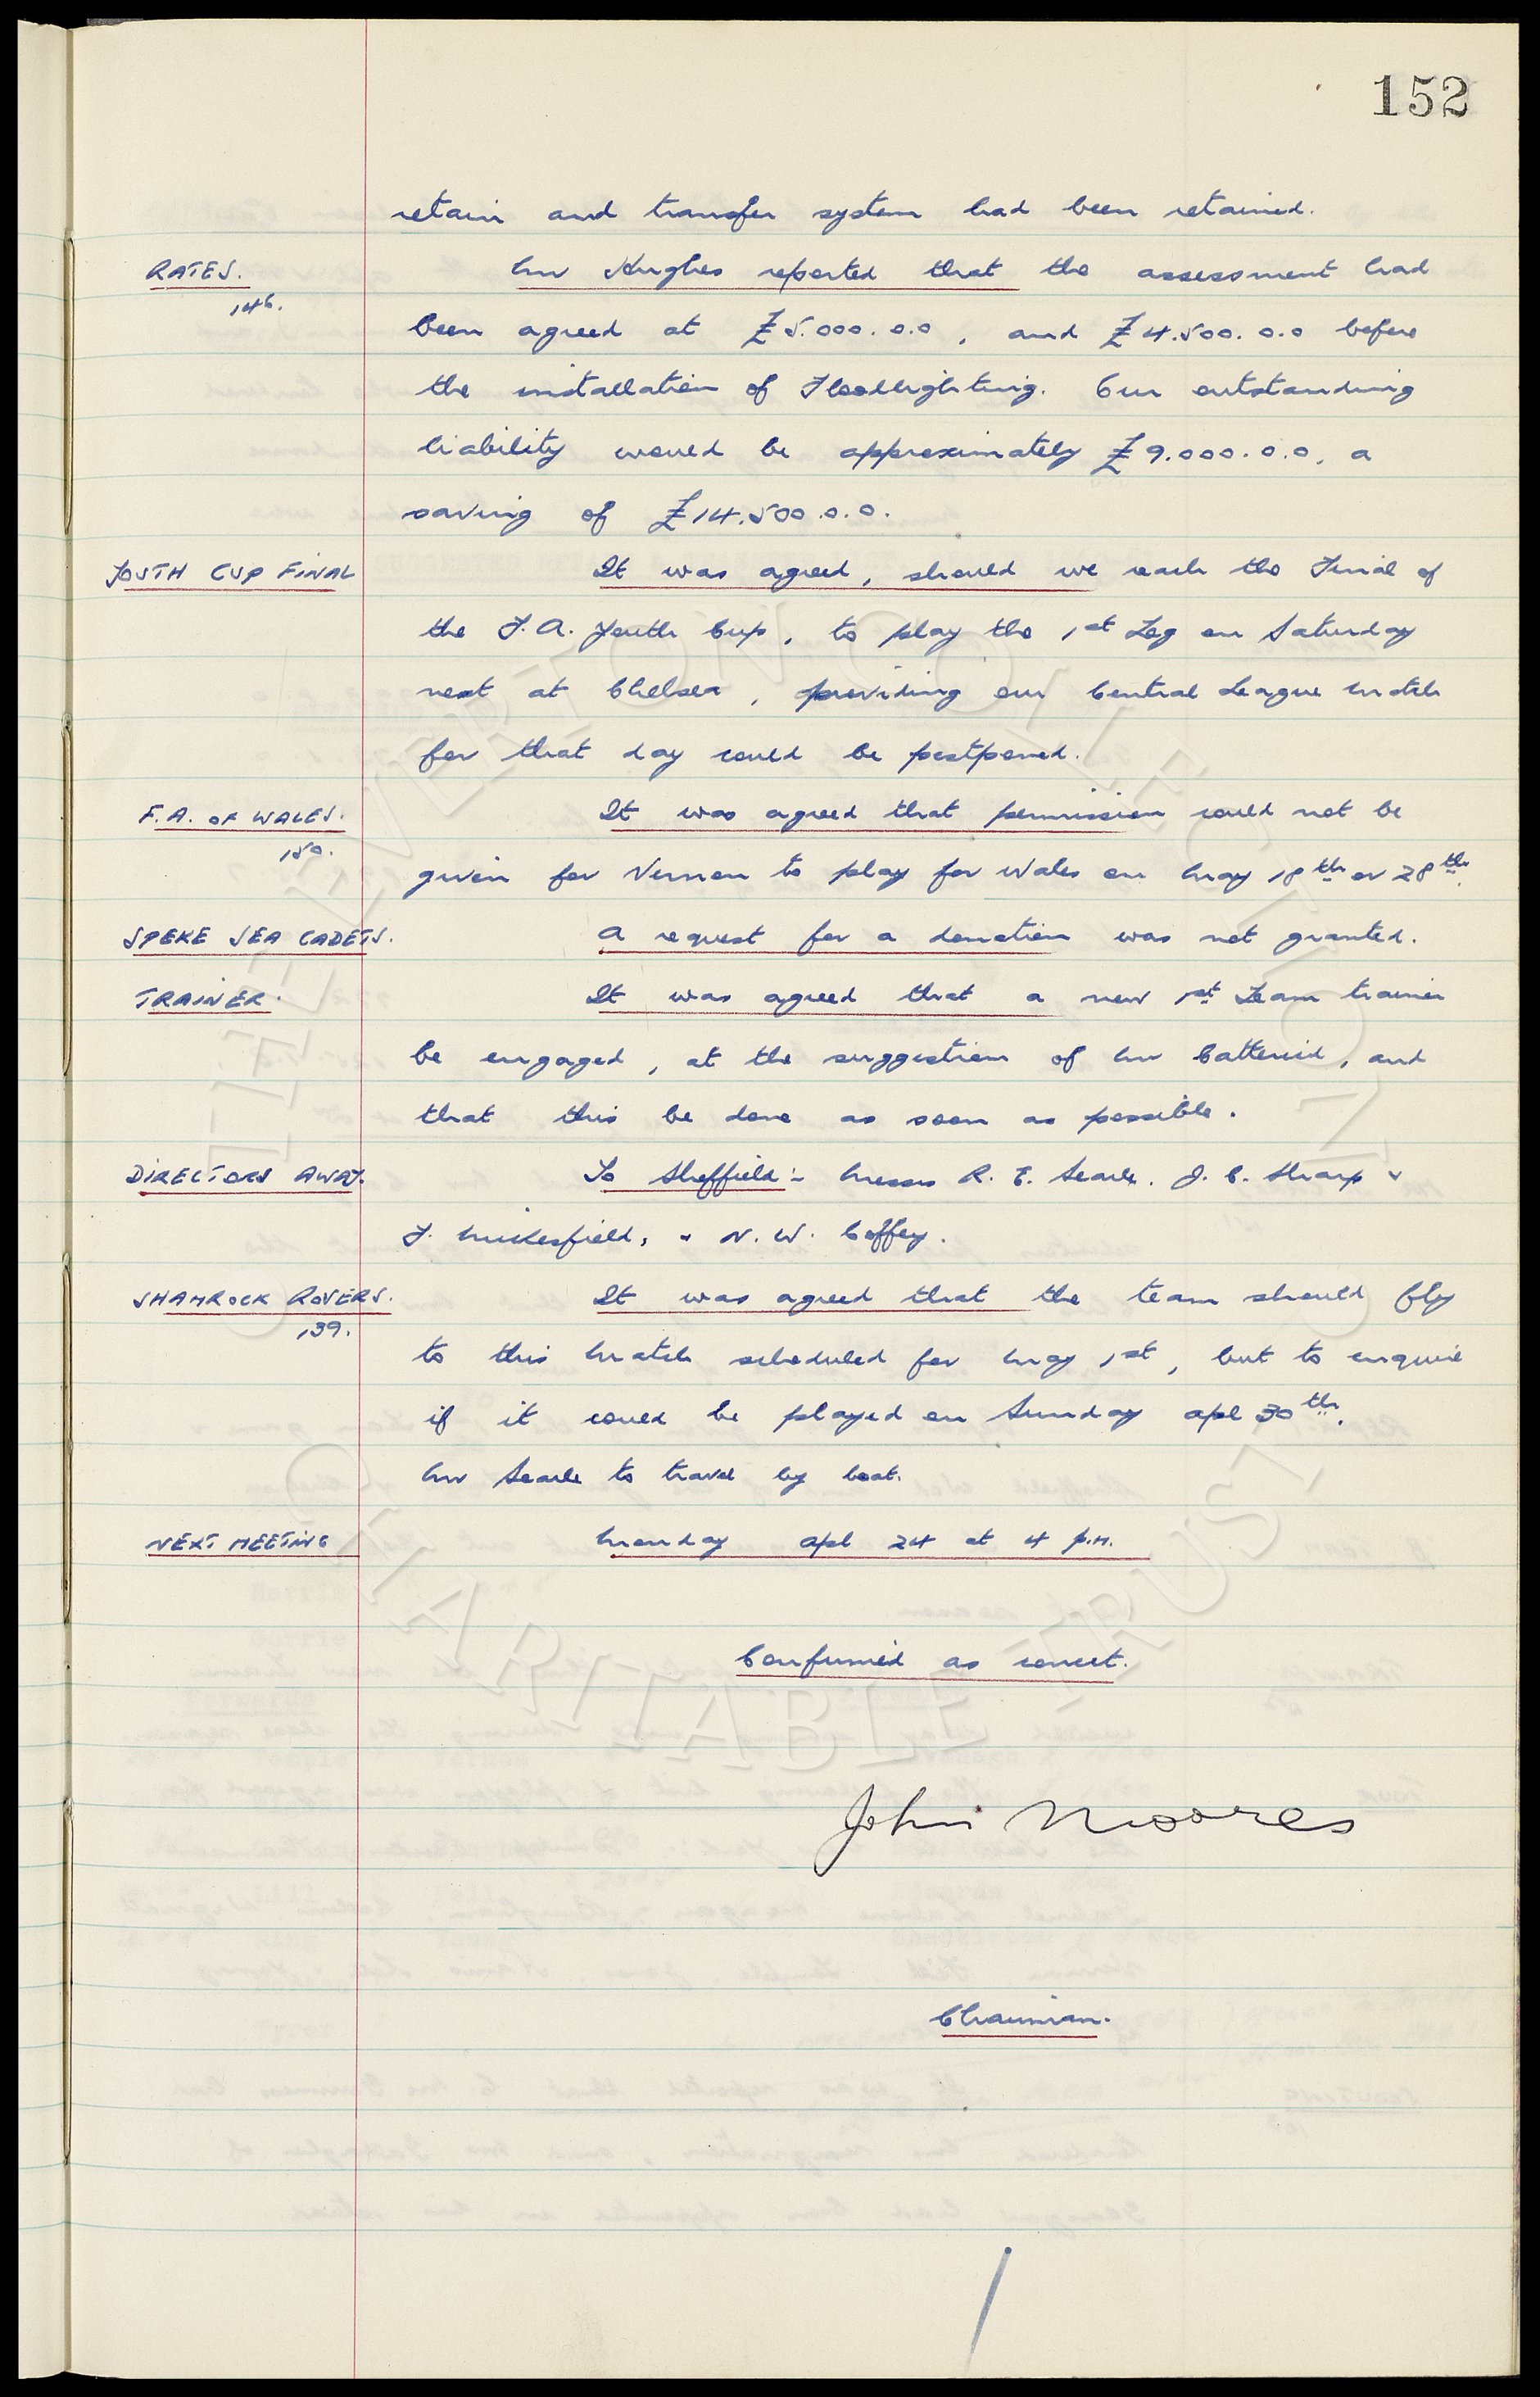 152
retain and transfer system had been retained.
RATES. Mr Hughes reported that the assessment had
146.
been agreed at £5.000.0.0, and £4.500.0.0 before
the installation of Floodlighting. Our outstanding
liability would be approximately £9.000.0.0, a
saving of £14.500.0.0.
YOUTH CUP FINAL It was agreed, should we reach the Final of
the F.A. Youth Cup, to play the 1st Leg on Saturday
next at Chelsea, providing our Central League match
for that day could be postponed.
F.A. OF WALES. It was agreed that permission could not be
150.
given for Vernon to play for Wales on May 18th or 28th.
SPEKE SEA CADETS. A request for a donation was not granted.
TRAINER. It was agreed that a new 1st Team trainer
be engaged, at the suggestion of Mr Catterick, and
that this be done as soon as possible.
DIRECTORS AWAY. To Sheffield:- Messrs R. E. Searle. J. C. Sharp &
F. Micklesfield, & N. W. Coffey.
SHAMROCK ROVERS. It was agreed that the team should fly
139.
to this match scheduled for May 1st, but to enquire
if it could be played on Sunday Apl 30th.
Mr Searle to travel by boat.
NEXT MEETING Monday Apl 24 at 4 p.m.
Confirmed as correct.
John Moores
Chairman.
THE EVERTON COLLECTION
CHARITABLE TRUST